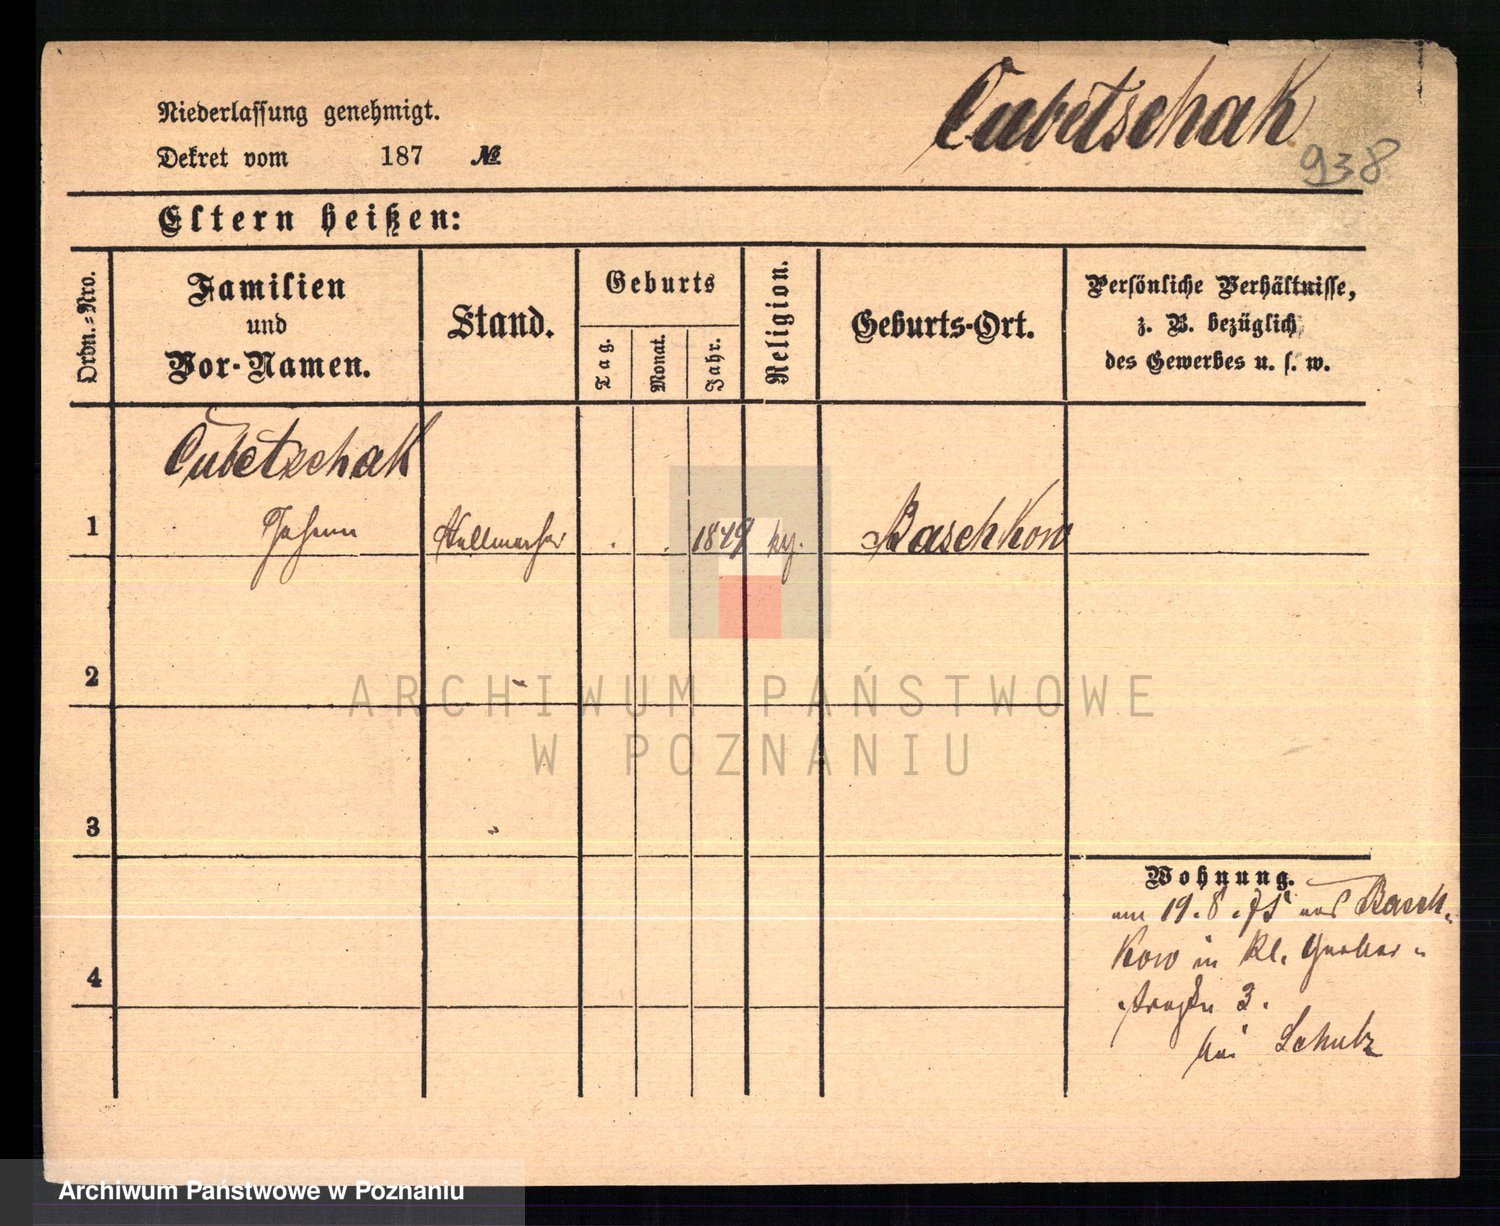 Niederlassung genehmigt.
Dekret vom 187 №
Cubetschak
938
Eltern heißen:
Ordn.-Nro.
Familien
und
Vor-Namen.
Stand.
Geburts
Tag.
Monat.
Jahr.
Religion.
Geburts-Ort.
Persönliche Verhältnisse,
z. B. bezüglich
des Gewerbes u. s. w.
Cubetschak
1 Johann Stellmacher 1849 Baschkow
2
3
4
Wohnung.
am 19.8.75 aus Basch-
kow in Kl. Gerber-
straße 3.
bei Schulz
ARCHIWUM PAŃSTWOWE
W POZNANIU
Archiwum Państwowe w Poznaniu